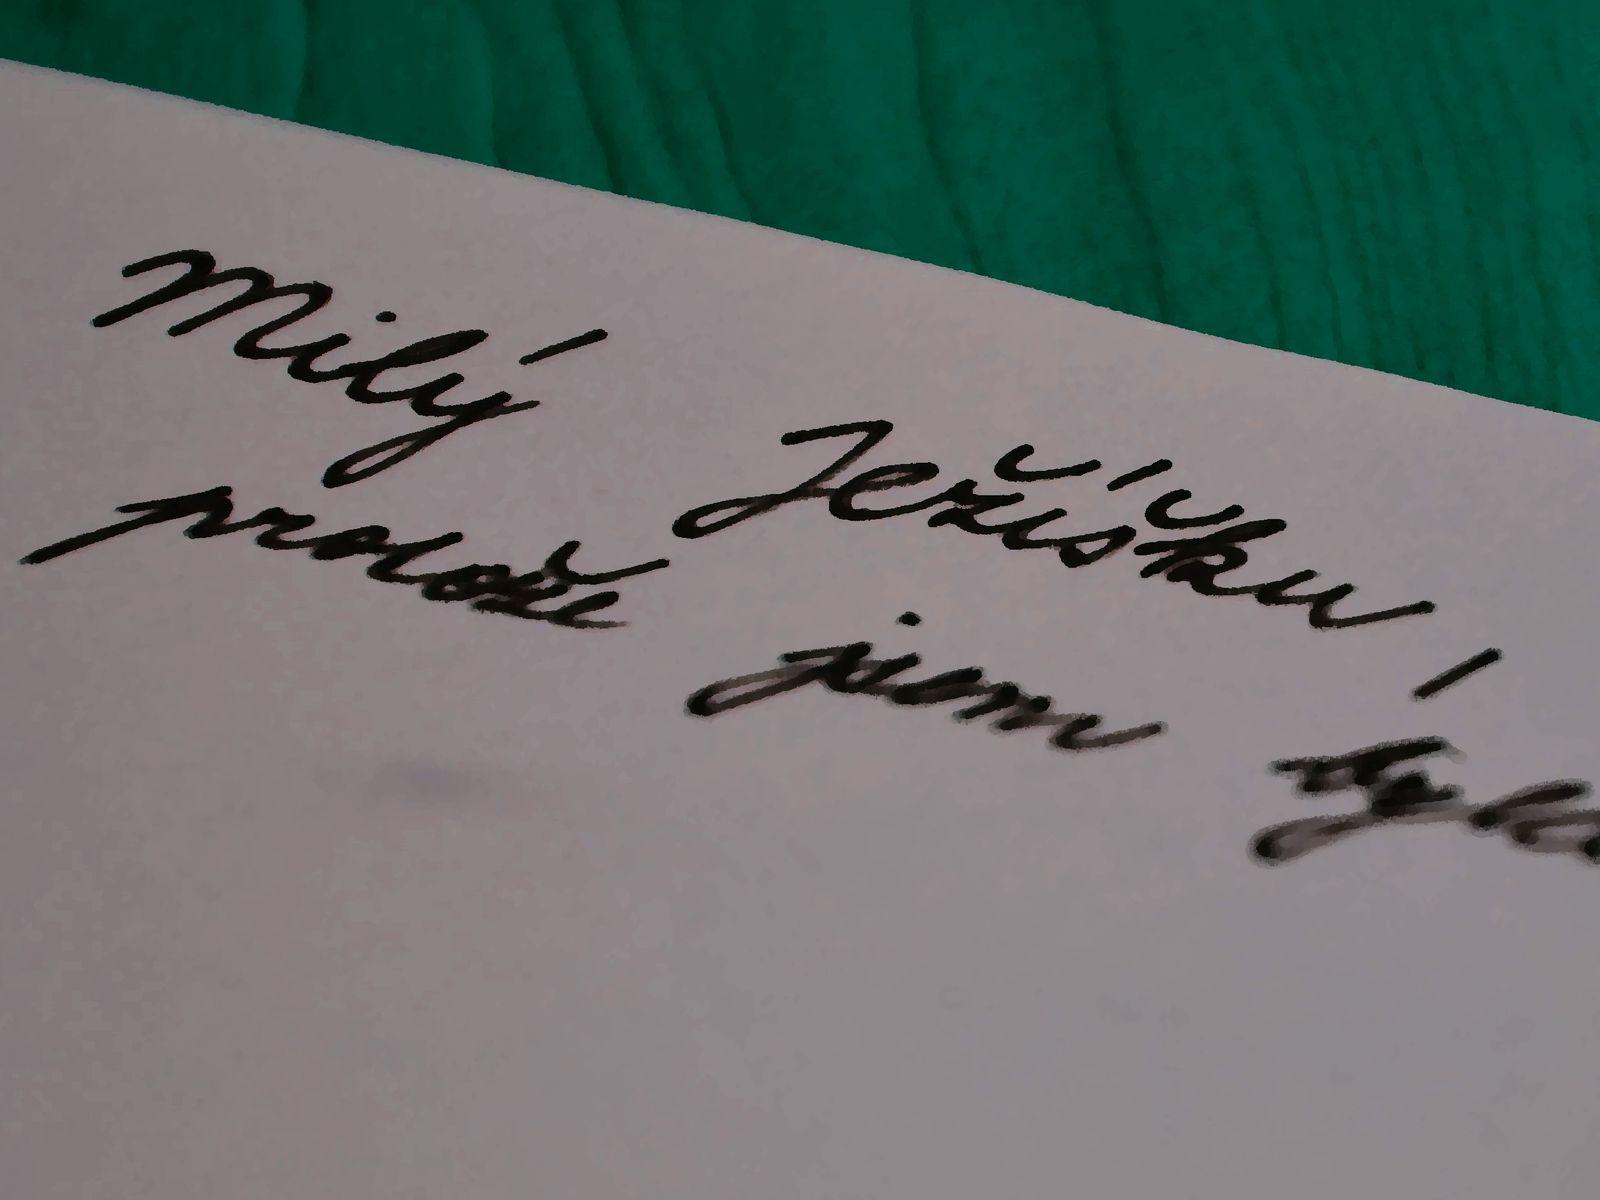 Milý Ježíšku,
protože jsem byla